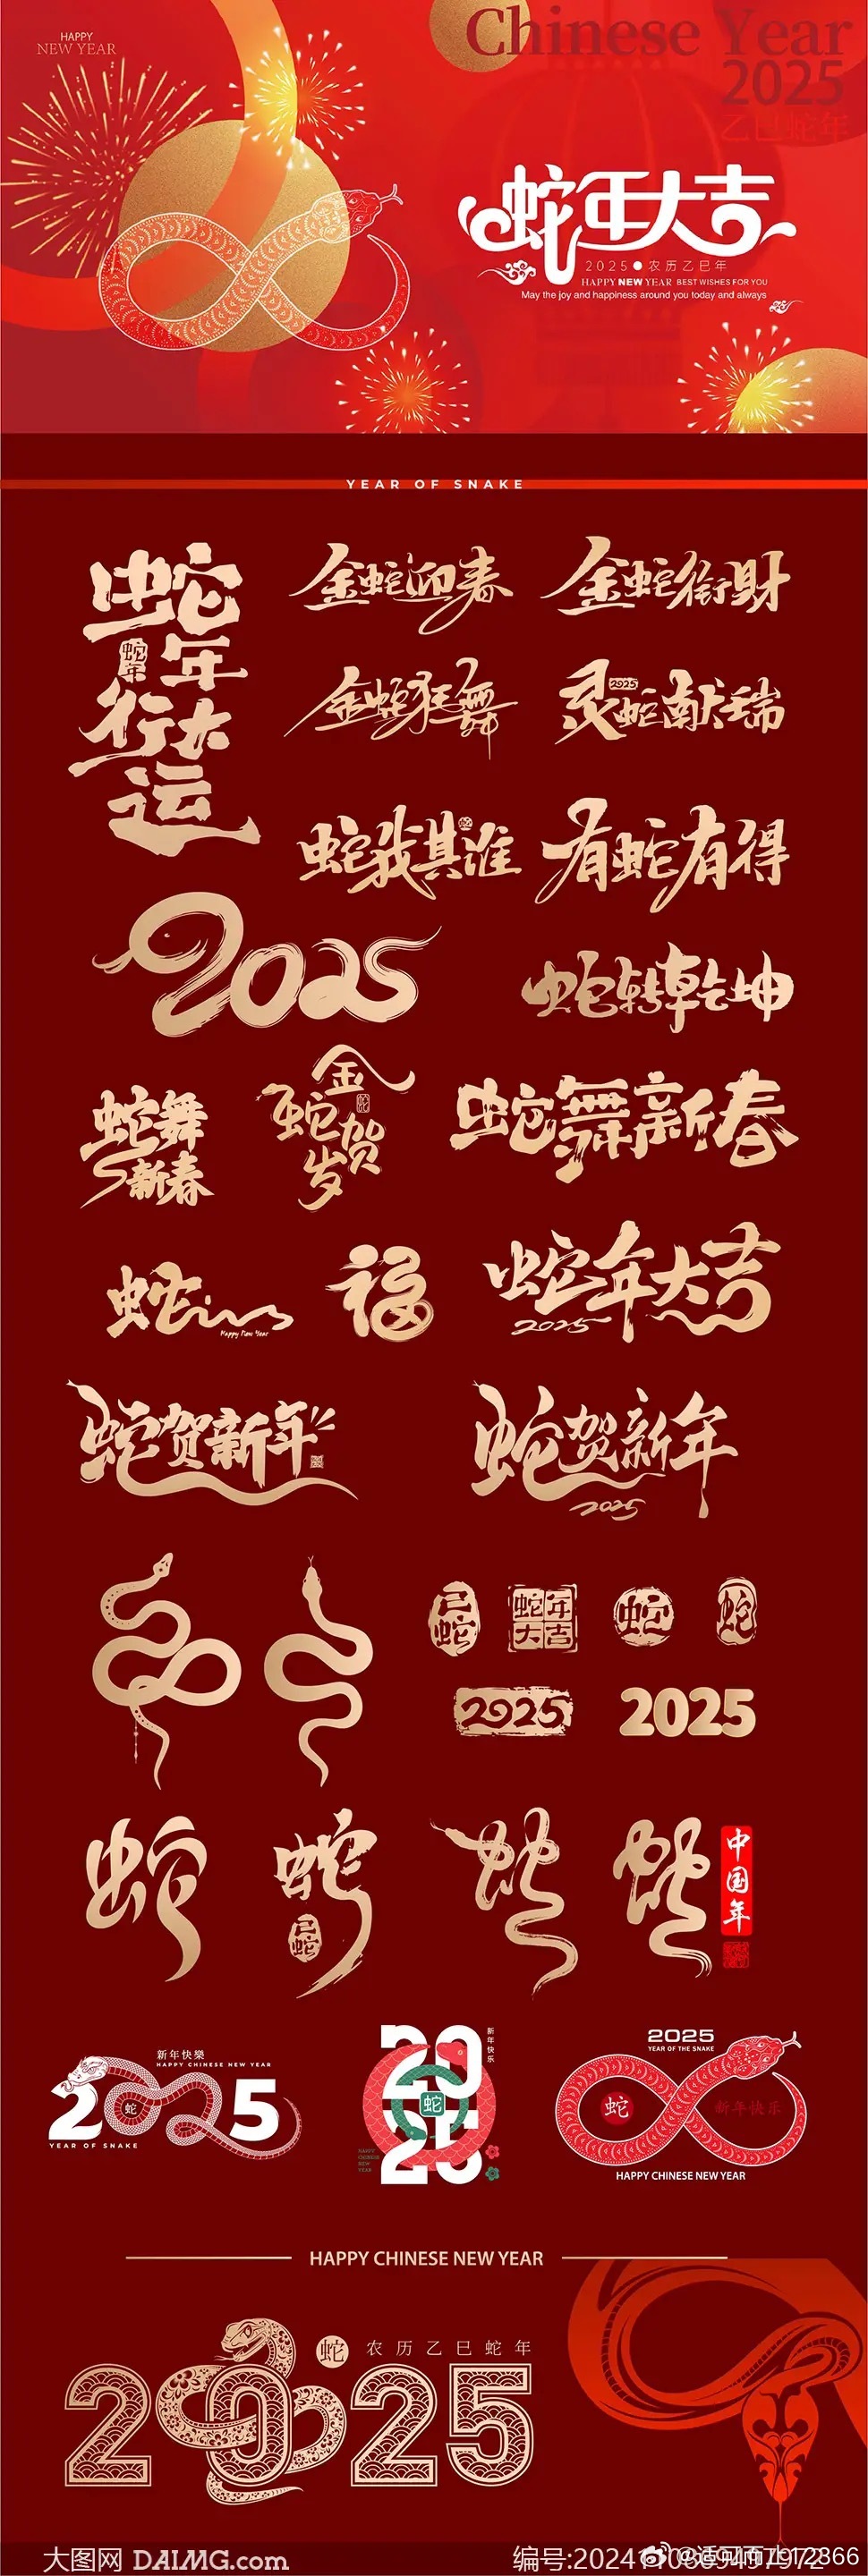 HAPPY
NEW YEAR
Chinese Year
2025
乙巳蛇年
蛇年大吉
2025●农历乙巳年
HAPPY NEW YEAR BEST WISHES FOR YOU
May the joy and happiness around you today and always
YEAR OF SNAKE
蛇年行大运
蛇年
金蛇迎春
金蛇衔財
金蛇狂舞
灵蛇献瑞
2025
蛇我其谁
有蛇有得
2025
蛇转乾坤
蛇舞新春
金蛇贺岁
蛇舞新春
蛇
Happy New Year
福
蛇年大吉
2025
蛇贺新年
蛇贺新年
2025
己蛇
蛇年大吉
蛇
蛇
2025
2025
蛇
蛇
己蛇
蛇
蛇
中国年
新年快樂
HAPPY CHINESE NEW YEAR
2025
蛇
YEAR OF SNAKE
2025
新年快乐
蛇
HAPPY
CHINESE
NEW
YEAR
2025
YEAR OF THE SNAKE
蛇
新年快乐
HAPPY CHINESE NEW YEAR
HAPPY CHINESE NEW YEAR
蛇
农历乙巳蛇年
2025
大图网 DAIMG.com